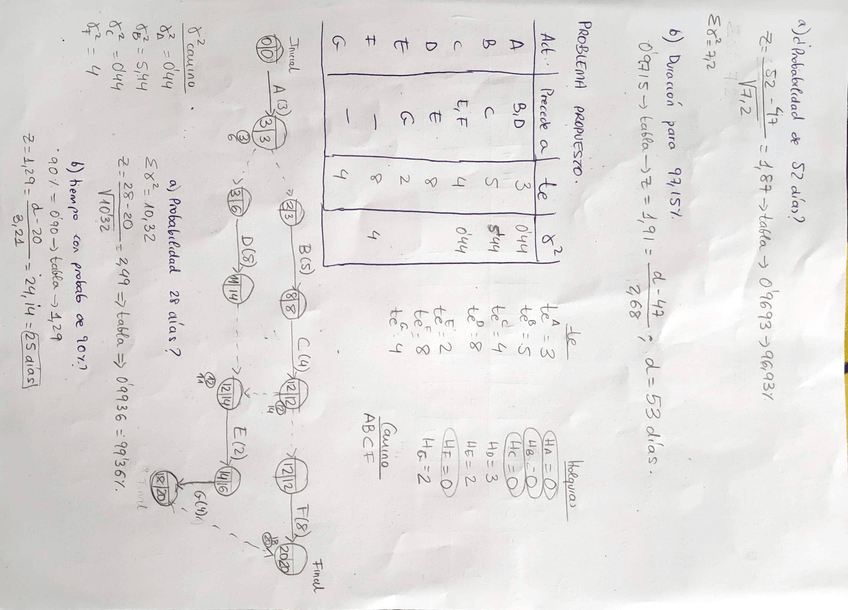 a) ¿Probabilidad de 52 días?
Z = 52 - 47 / √7,2 = 1,87 → tabla → 0'9693 → 96,93%
Σσ² = 7,2
b) Duración para 97,15%
0'9715 → tabla → Z = 1,91 = d - 47 / 2,68 ; d = 53 días.
PROBLEMA PROPUESTO.
Act. Precede a te σ²
A B,D 3 0'44
B C 5 5'44
C E,F 4 0'44
D E 8
E G 2
F — 8 4
G — 4
te
te^A = 3
te^B = 5
te^C = 4
te^D = 8
te^E = 2
te^F = 8
te^G = 4
Holguras
HA = 0
HB = 0
HC = 0
HD = 3
HE = 2
HF = 0
HG = 2
Camino
ABCF
Inicial
0|0 A(3) 3|3
3
6
2|3 B(5) 8|8 C(4) 12|12 12|12 F(8) 20|20 Final
12
14
18
20
3|6 D(8) 11|14 12|14 E(2) 14|16
12
11
G(4)
18|20
Final
σ² camino
σ²A = 0'44
σ²B = 5,44
σ²C = 0'44
σ²F = 4
a) Probabilidad 28 días?
Σσ² = 10,32
Z = 28 - 20 / √10'32 = 2,49 ⇒ tabla ⇒ 0'9936 = 99'36%.
b) tiempo con probab de 90%?
90% = 0'90 → tabla → 1,29
Z = 1,29 = d - 20 / 3,21 = 24,14 = 25 días